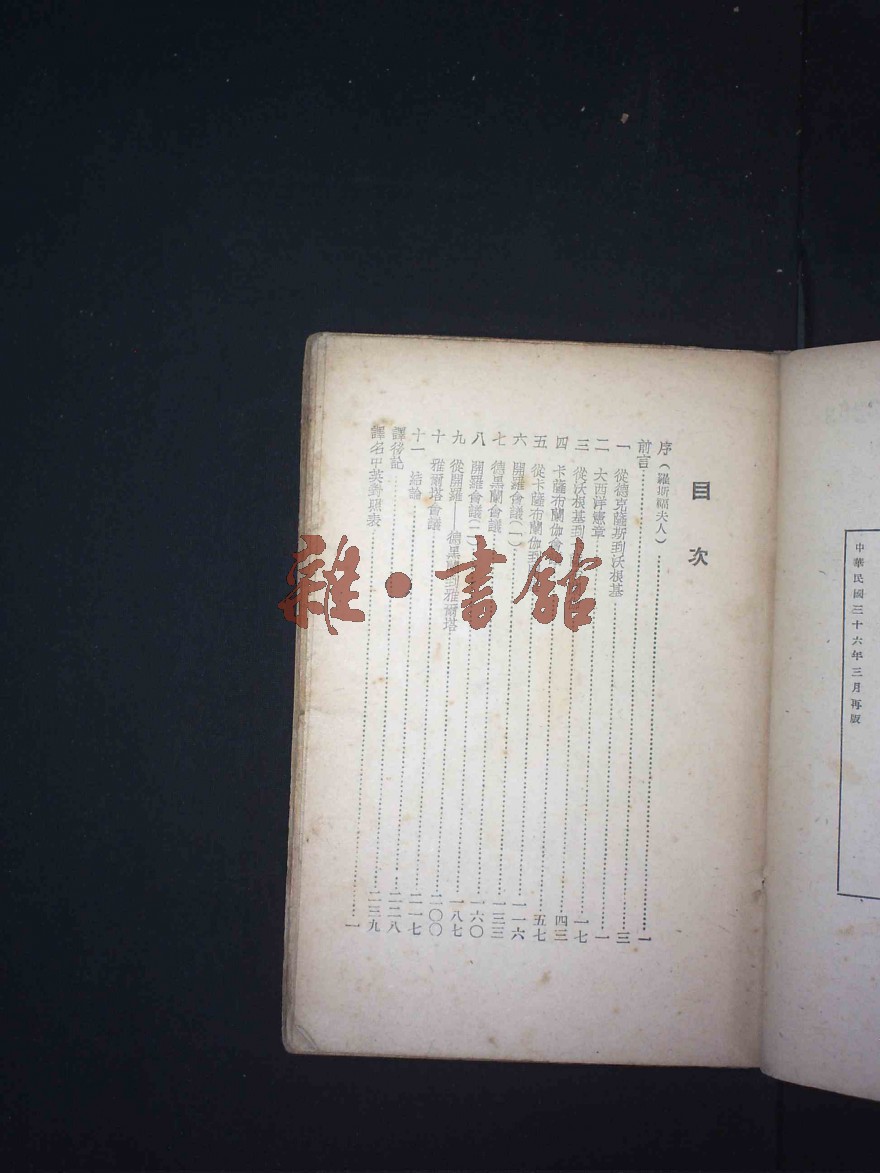 中華民國三十六年三月再版
目次
序(羅斯福夫人)……一
前言……三
一 從德克薩斯到沃根基……一
二 大西洋憲章……一七
三 從沃根基到……四三
四 卡薩布蘭伽會……五七
五 從卡薩布蘭伽到……一一六
六 開羅會議(一)……一三三
七 德黑蘭會議……一六〇
八 開羅會議(二)……一八七
九 從開羅——德黑蘭到雅爾塔……二〇〇
十 雅爾塔會議……二一七
十一 結論……二二八
譯後記……二三九
譯名中英對照表……一
雜·書館